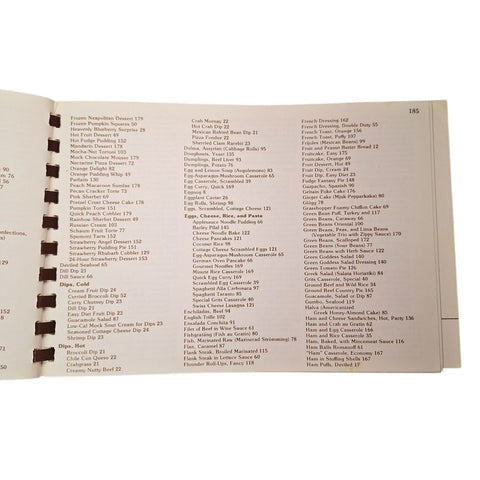 185
90
76
onfections,
0
56
Frozen Neapolitan Dessert 179
Frozen Pumpkin Squares 50
Heavenly Blueberry Surprise 28
Hot Fruit Dessert 49
Ice Fudge Pudding 152
Mandarin Dessert 178
Mocha-Nut Tortoni 103
Mock Chocolate Mousse 179
Nectarine Pizza Dessert 72
Orange Delight 82
Orange Pudding Whip 49
Parfaits 130
Peach Macaroon Sundae 178
Pecan Cracker Torte 73
Pink Sherbet 69
Pretzel Crust Cheese Cake 178
Pumpkin Torte 151
Quick Peach Cobbler 179
Rainbow Sherbet Dessert 49
Russian Cream 103
Schaum Fruit Torte 77
Spumoni Tarts 152
Strawberry Angel Dessert 152
Strawberry Pudding Pie 151
Strawberry Rhubarb Cobbler 129
24-Hour Strawberry Dessert
Deviled Seafood 65
Dill Dip 21
Dill Dip 23
Dips, Cold
Cream Fruit Dip 24
Curried Broccoli Dip 52
Curry Chutney Dip 21
Dill Dip 23
Easy Dieter Fruit Dip 23
Guacamole Salad 87
Low-Cal Mock Sour Cream for Dips 23
Seasoned Cottage Cheese Dip 24
Shrimp Dip 23
Dips, Hot
Broccoli Dip 21
Chile Con Queso 22
Crabgrass 21
Creamy Nutty Beef 22
Crab Mornay 22
Hot Crab Dip 22
Mexican Baked Bean Dip 21
Pizza Fondue 22
Sherried Clam Rarebit 23
Dolma, Assyrian (Cabbage Rolls) 95
Doughnuts, Yeast 135
Dumplings, Beef Liver 93
Dumplings, Potato 76
Egg and Lemon Soup (Avgolemono) 83
Egg-Asparagus-Mushroom Casserole 65
Egg Casserole, Scrambled 39
Egg Curry, Quick 169
Eggnog 8
Eggplant Caviar 26
Egg Rolls, Shrimp 98
Eggs, Scrambled, Cottage Cheese 121
Eggs, Cheese, Rice, and Pasta
Applesauce Noodle Pudding 66
Barley Pilaf 141
Cheese Noodle Bake 122
Cheese Pancakes 121
Coconut Rice 98
Cottage Cheese Scrambled Eggs 121
Egg-Asparagus-Mushroom Casserole 65
German Oven Pancake 66
Gourmet Noodles 169
Mount Rice Casserole 169
Quick Bean Lasagne 169
Quick Egg Curry 169
Scrambled Egg Casserole 39
Spaghetti Alla Carbonara 97
Spaghetti Tarante 85
Special Grits Casserole 40
Swiss Cheese Lasagne 121
Enchiladas, Beef 94
English Trifle 102
Ensalada Conchita 91
Filet of Beef in Wine Sauce 61
Fishgratäng (Fish au Gratin) 80
Fish, Marinated Raw (Marinerad Strömming) 78
Flan, Caramel 87
Flank Steak, Broiled Marinated 115
Flank Steak in Lettuce Sauce 60
Flounder Roll-Ups, Fancy 118
French Dressing 162
French Dressing, Double Duty 55
French Toast, Orange 156
French Toast, Puffy 107
Frijoles (Mexican Beans) 99
Fruit and Peanut Butter Bread 12
Fruitcake, Easy 175
Fruitcake, Orange 69
Fruit Dessert, Hot 49
Fruit Dip, Cream 24
Fruit Dip, Easy Diet 23
Fudge Fantasy Pie 148
Gazpacho, Spanish 90
Gelatin Poke Cake 176
Ginger Cake (Mjuk Pepparkaka) 80
Glögg 78
Grasshopper Foamy Chiffon Cake 69
Green Bean Puff, Turkey and 117
Green Beans, Caraway 66
Green Beans, Oriental 100
Green Beans, Peas, and Lima Beans
(Vegetable Trio with Zippy Sauce) 170
Green Beans, Scalloped 172
Green Beans (Sour Beans) 77
Green Beans with Herb Sauce 122
Green Goddess Salad 140
Green Goddess Salad Dressing 140
Green Tomato Pie 126
Greek Salad (Salata Horiatiki) 84
Grits Casserole, Special 40
Ground Beef and Wild Rice 34
Ground Beef Country Pie 165
Guacamole, Salad or Dip 87
Gumbo, Seafood 119
Halva (Americanized
Greek Honey-Almond Cake) 85
Ham and Cheese Sandwiches, Hot 136
Ham and Crab au Gratin 62
Ham and Egg Casserole 166
Ham and Rice Casserole 35
Ham, Baked, with Mincemeat Sauce 116
Ham Balls Romanoff 61
"Ham" Casserole, Economy 167
Ham in Stuffing Shells 167
Ham Puffs, Deviled 17